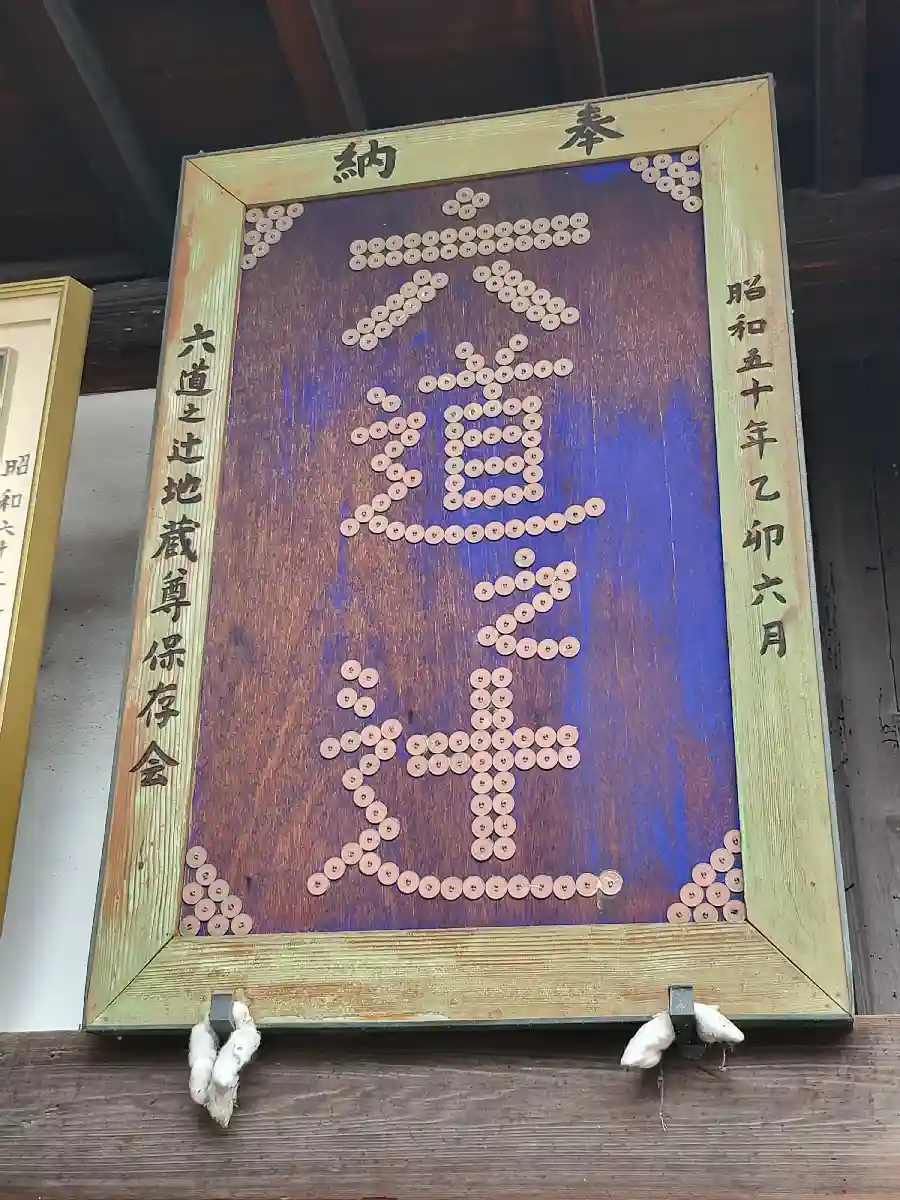 奉納
昭和五十年乙卯六月
六道之辻
六道之辻地蔵尊保存会
昭和六十